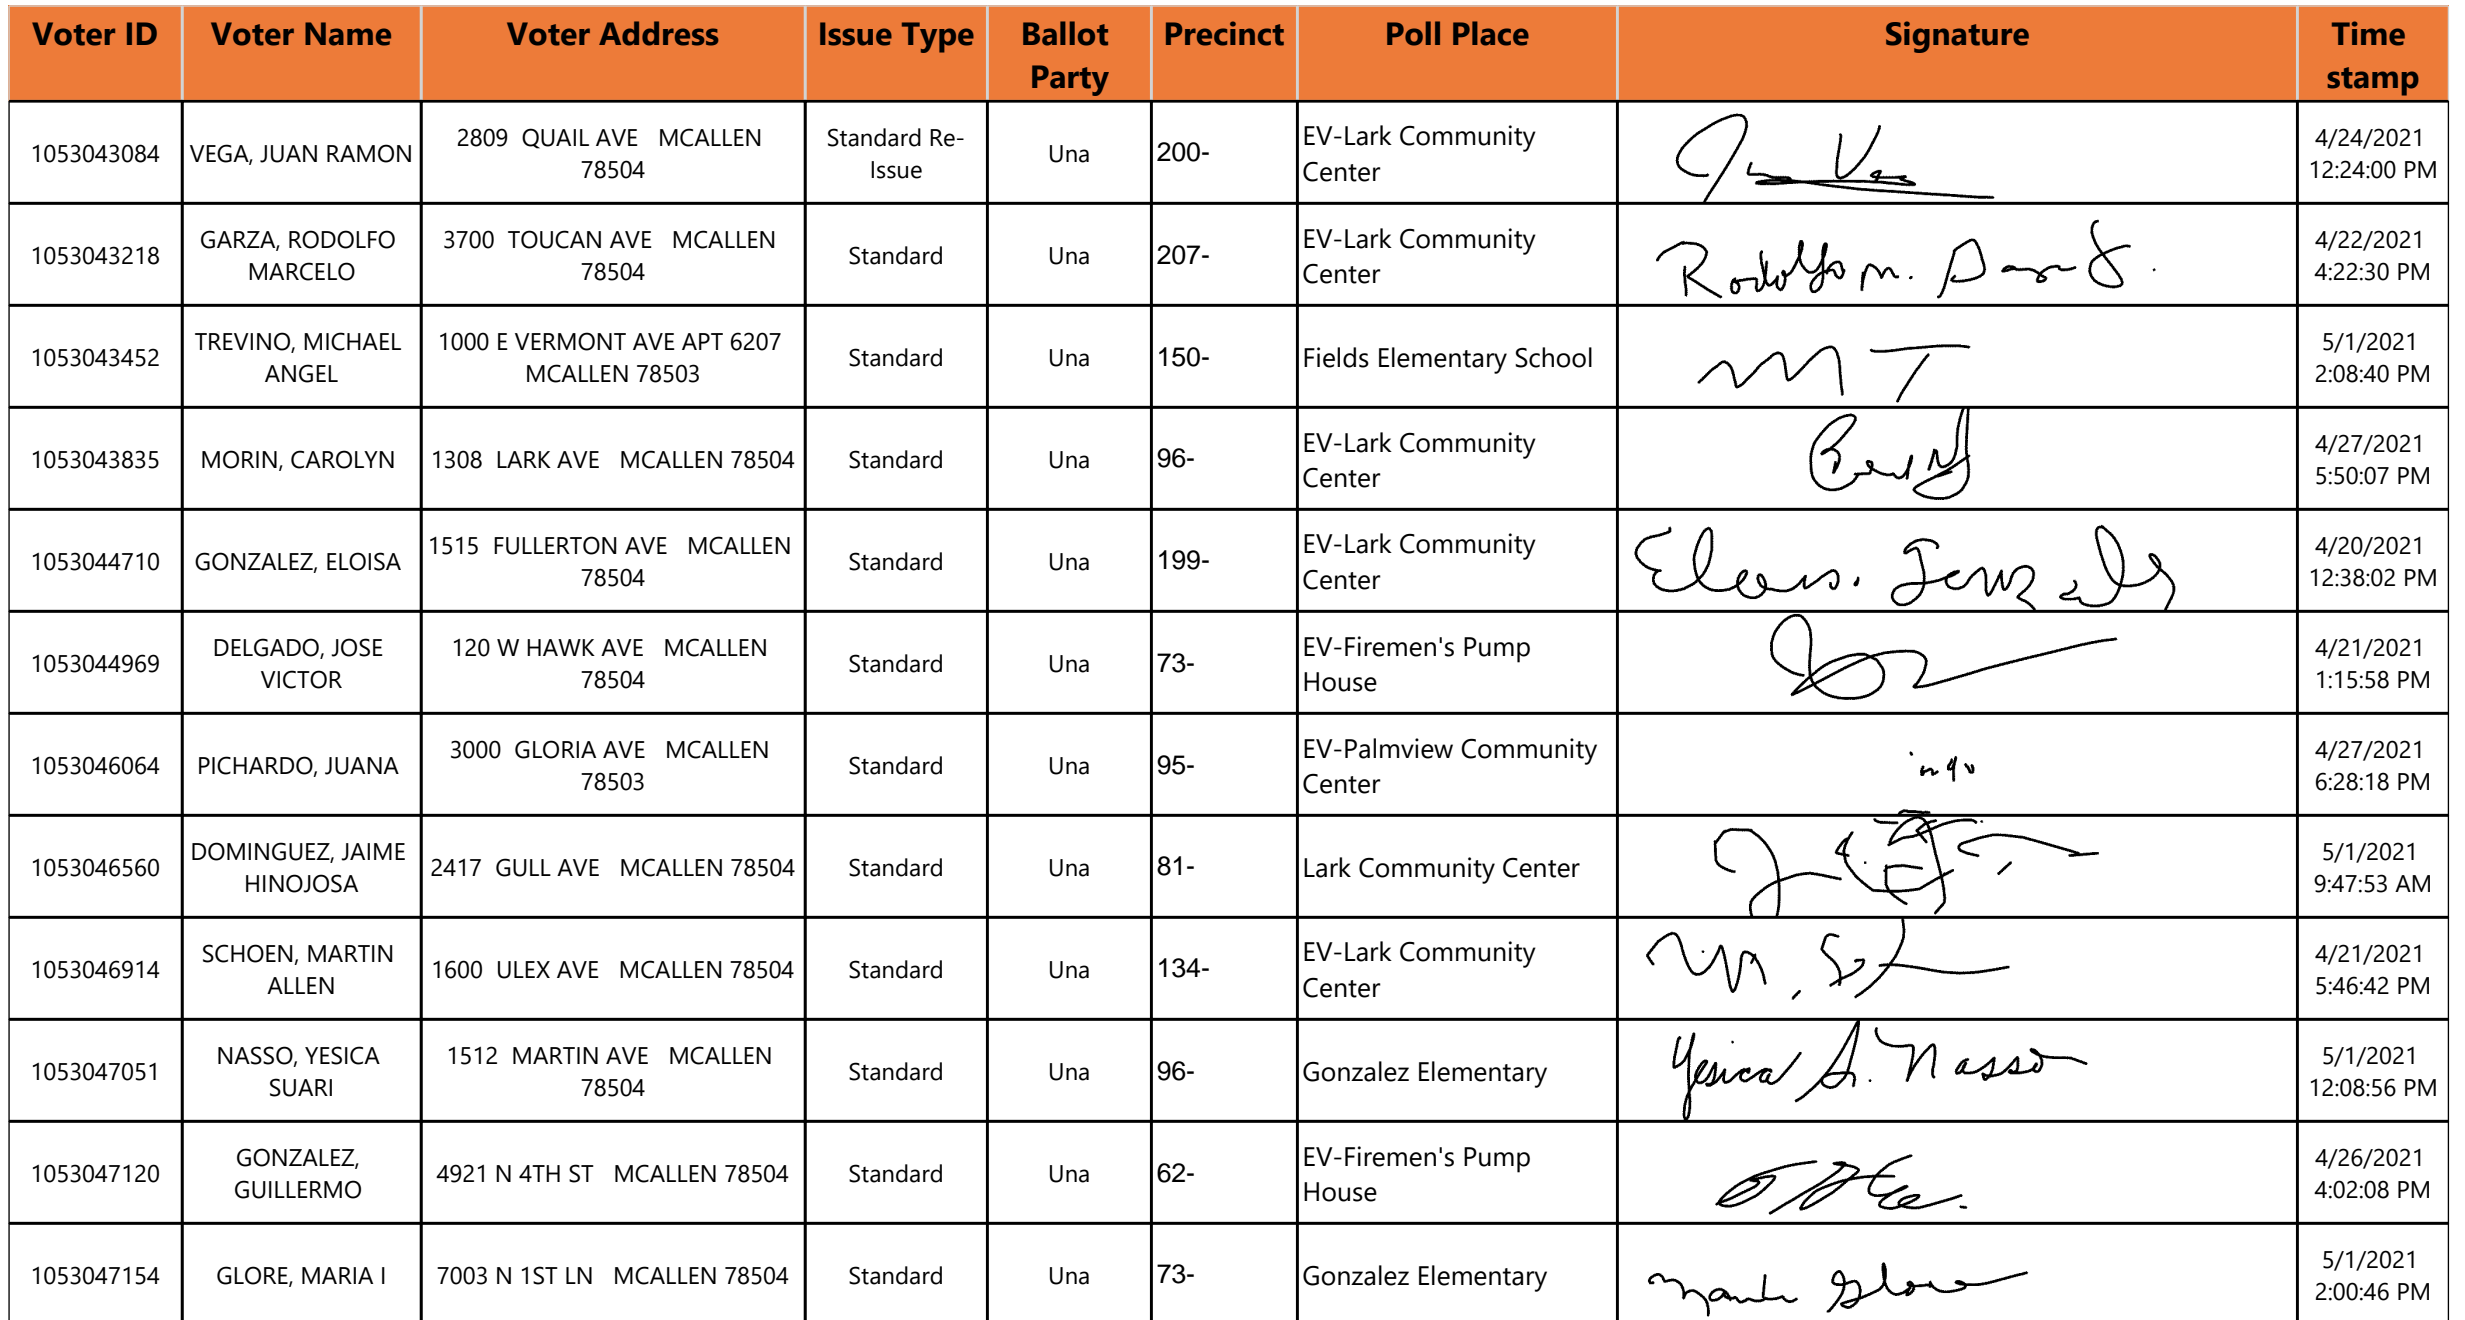 Voter ID Voter Name Voter Address Issue Type Ballot Party Precinct Poll Place Signature Time stamp
1053043084 VEGA, JUAN RAMON 2809 QUAIL AVE MCALLEN 78504 Standard Re-Issue Una 200- EV-Lark Community Center 4/24/2021 12:24:00 PM
1053043218 GARZA, RODOLFO MARCELO 3700 TOUCAN AVE MCALLEN 78504 Standard Una 207- EV-Lark Community Center Rodolfo M. 4/22/2021 4:22:30 PM
1053043452 TREVINO, MICHAEL ANGEL 1000 E VERMONT AVE APT 6207 MCALLEN 78503 Standard Una 150- Fields Elementary School M T 5/1/2021 2:08:40 PM
1053043835 MORIN, CAROLYN 1308 LARK AVE MCALLEN 78504 Standard Una 96- EV-Lark Community Center 4/27/2021 5:50:07 PM
1053044710 GONZALEZ, ELOISA 1515 FULLERTON AVE MCALLEN 78504 Standard Una 199- EV-Lark Community Center 4/20/2021 12:38:02 PM
1053044969 DELGADO, JOSE VICTOR 120 W HAWK AVE MCALLEN 78504 Standard Una 73- EV-Firemen's Pump House 4/21/2021 1:15:58 PM
1053046064 PICHARDO, JUANA 3000 GLORIA AVE MCALLEN 78503 Standard Una 95- EV-Palmview Community Center 4/27/2021 6:28:18 PM
1053046560 DOMINGUEZ, JAIME HINOJOSA 2417 GULL AVE MCALLEN 78504 Standard Una 81- Lark Community Center 5/1/2021 9:47:53 AM
1053046914 SCHOEN, MARTIN ALLEN 1600 ULEX AVE MCALLEN 78504 Standard Una 134- EV-Lark Community Center 4/21/2021 5:46:42 PM
1053047051 NASSO, YESICA SUARI 1512 MARTIN AVE MCALLEN 78504 Standard Una 96- Gonzalez Elementary Yesica S. Nasso 5/1/2021 12:08:56 PM
1053047120 GONZALEZ, GUILLERMO 4921 N 4TH ST MCALLEN 78504 Standard Una 62- EV-Firemen's Pump House 4/26/2021 4:02:08 PM
1053047154 GLORE, MARIA I 7003 N 1ST LN MCALLEN 78504 Standard Una 73- Gonzalez Elementary 5/1/2021 2:00:46 PM